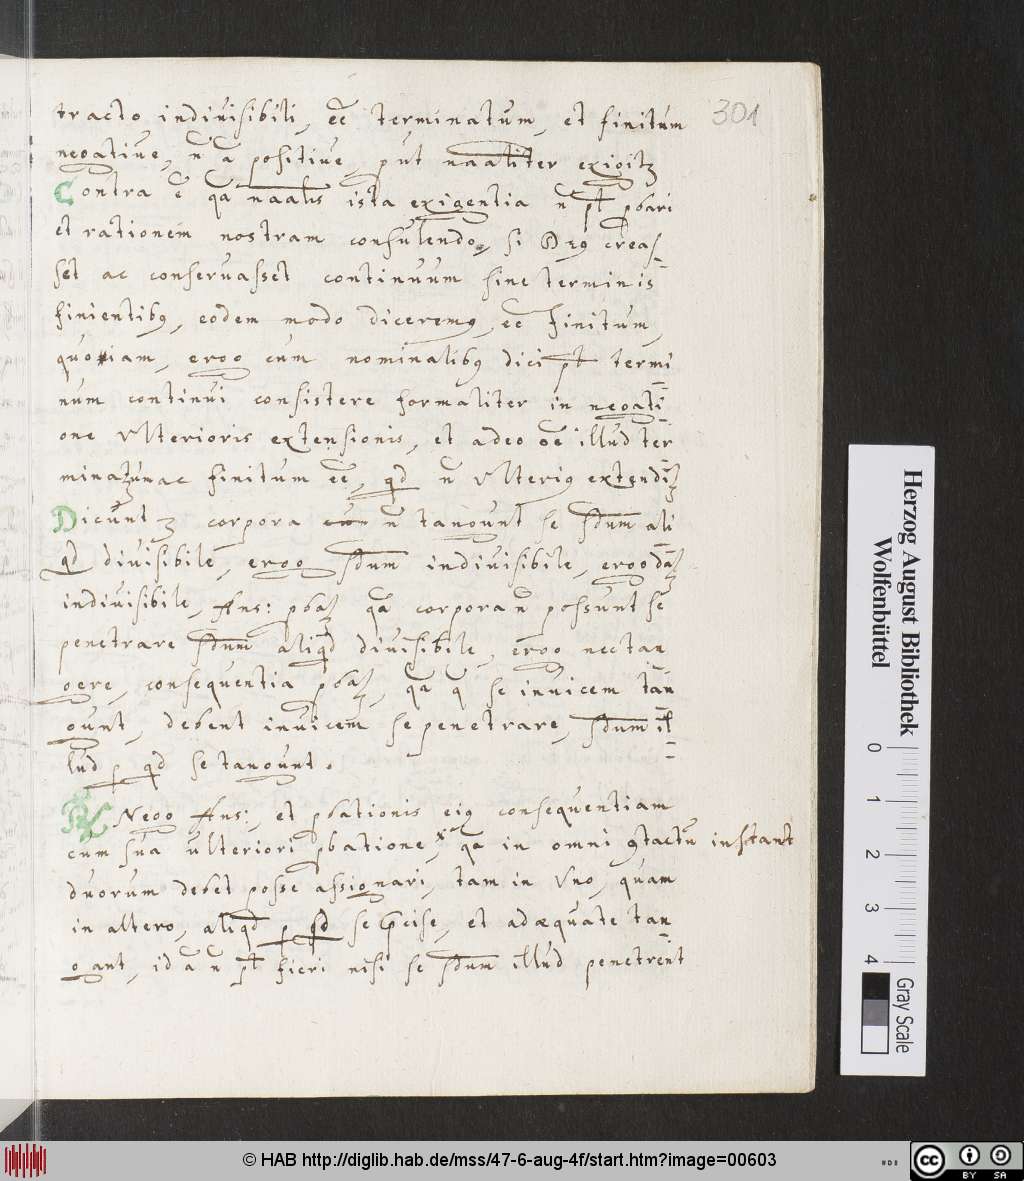 301
tracto indiuisibili, eē terminatum, et finitum
negatiue, n̄ a positiue, put naāliter exigitʒ
Contra ē qa naālis ista exigentia n̄ pt pbari
et rationem nostram consulendo, si Deꝰ creas=
set ac conseruasset continuum sine terminis
finientibꝰ, eodem modo diceremꝰ, eē finitum,
quoniam, ergo cum nominalibꝰ dici pt termi=
num continui consistere formaliter in negati=
one Vlterioris extensionis, et adeo illud ter=
minatum ac finitum eē, qd n̄ Vlteriꝰ extenditʒ
Dicunt corpora n̄ tangunt se sdum ali=
qd diuisibile, ergo sdum indiuisibile, ergo datʒ
indiuisibile, Ans: pbatʒ qa corpora n̄ possunt se
penetrare sdum aliqd diuisibile, ergo nec tan=
gere, consequentia pbatʒ, qa q se inuicem tan=
gunt, debent inuicem se penetrare, sdum il=
lud p qd se tangunt.
Nego Ans:, et pbationis eiꝰ consequentiam
cum sua ulteriori pbatione, qa in omni ꝯtactu instant
duorum debet posse assignari, tam in Vno, quam
in altero, aliqd p qd se pcise, et adæquate tan=
gant, id a n̄ pt fieri nisi se sdum illud penetrent
Herzog August Bibliothek
Wolfenbüttel
0 1 2 3 4
Gray Scale
© HAB http://diglib.hab.de/mss/47-6-aug-4f/start.htm?image=00603
cc BY SA